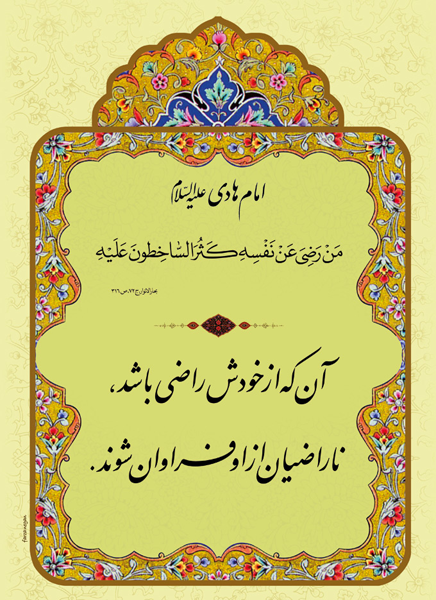 امام هادی علیه السلام
مَنْ رَضِیَ عَنْ نَفْسِهِ کَثُرَ السّاخِطونَ عَلَیْهِ
بحارالانوار ج۷۲، ص۳۱۶
آن که از خودش راضی باشد،
ناراضیان از او فراوان شوند.